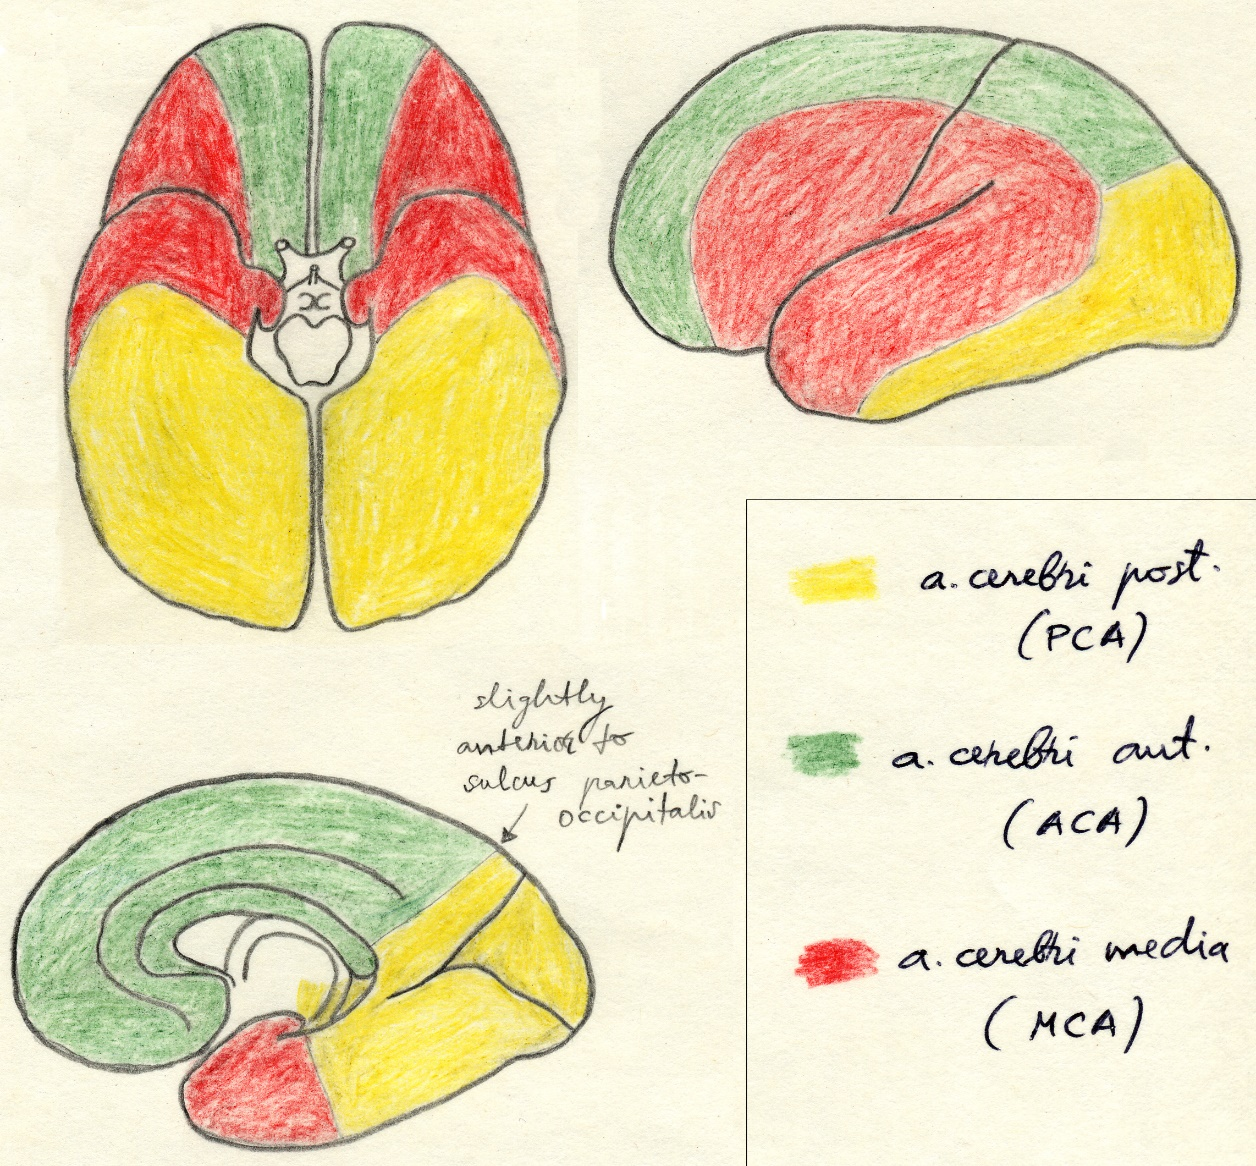 slightly
anterior to
sulcus parieto-
occipitalis
a. cerebri post.
(PCA)
a. cerebri ant.
(ACA)
a. cerebri media
(MCA)